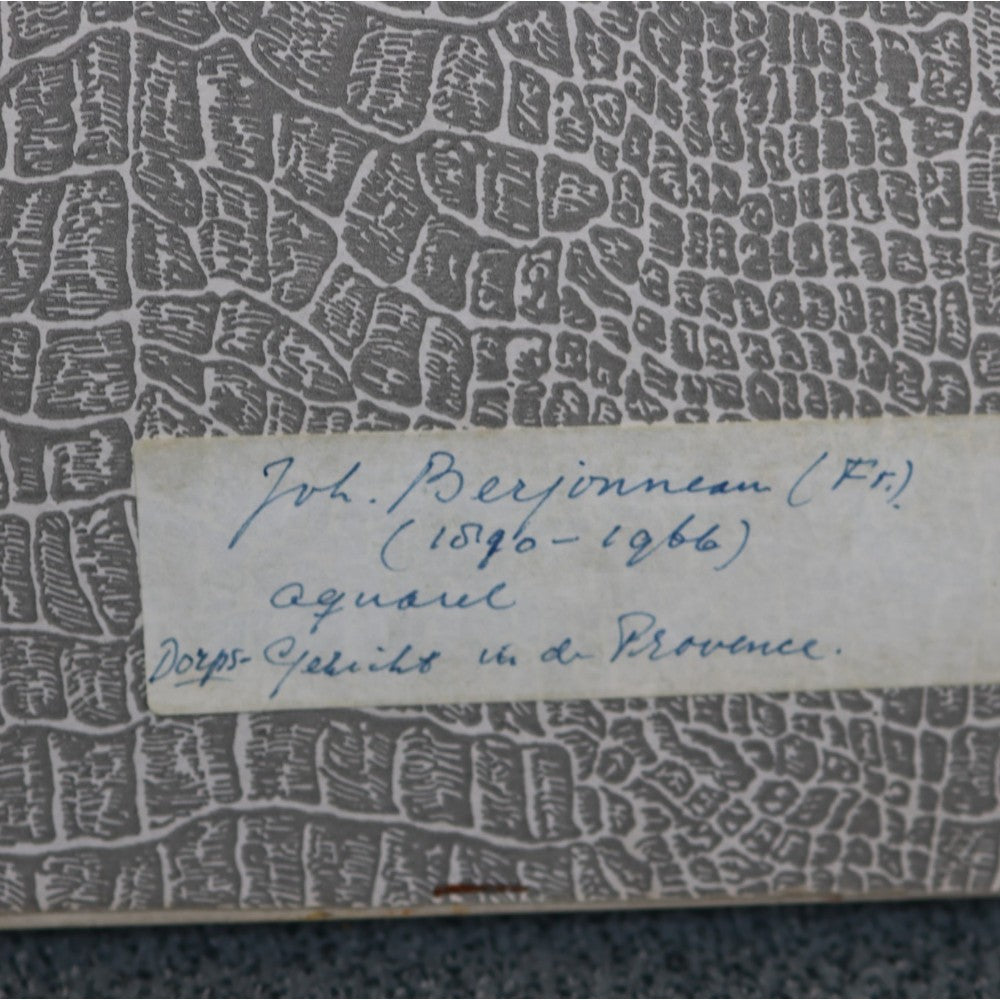 Joh. Berjonneau (Fr.)
(1890-1966)
aquarel
Dorps-Gezicht in de Provence.